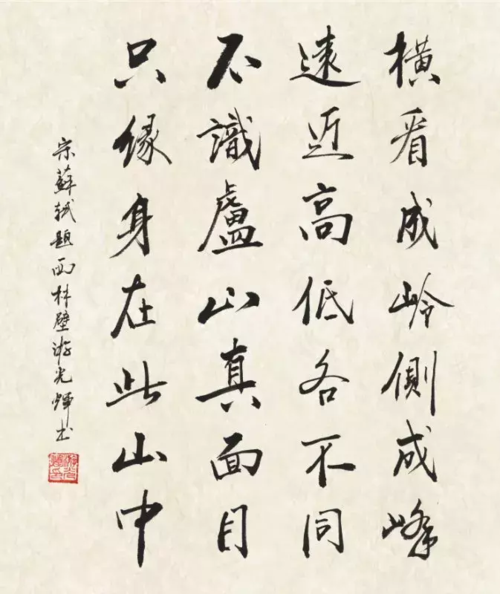 橫看成岭側成峰
遠近高低各不同
不識盧山真面目
只缘身在此山中
宗蘇軾題西林壁游光輝书